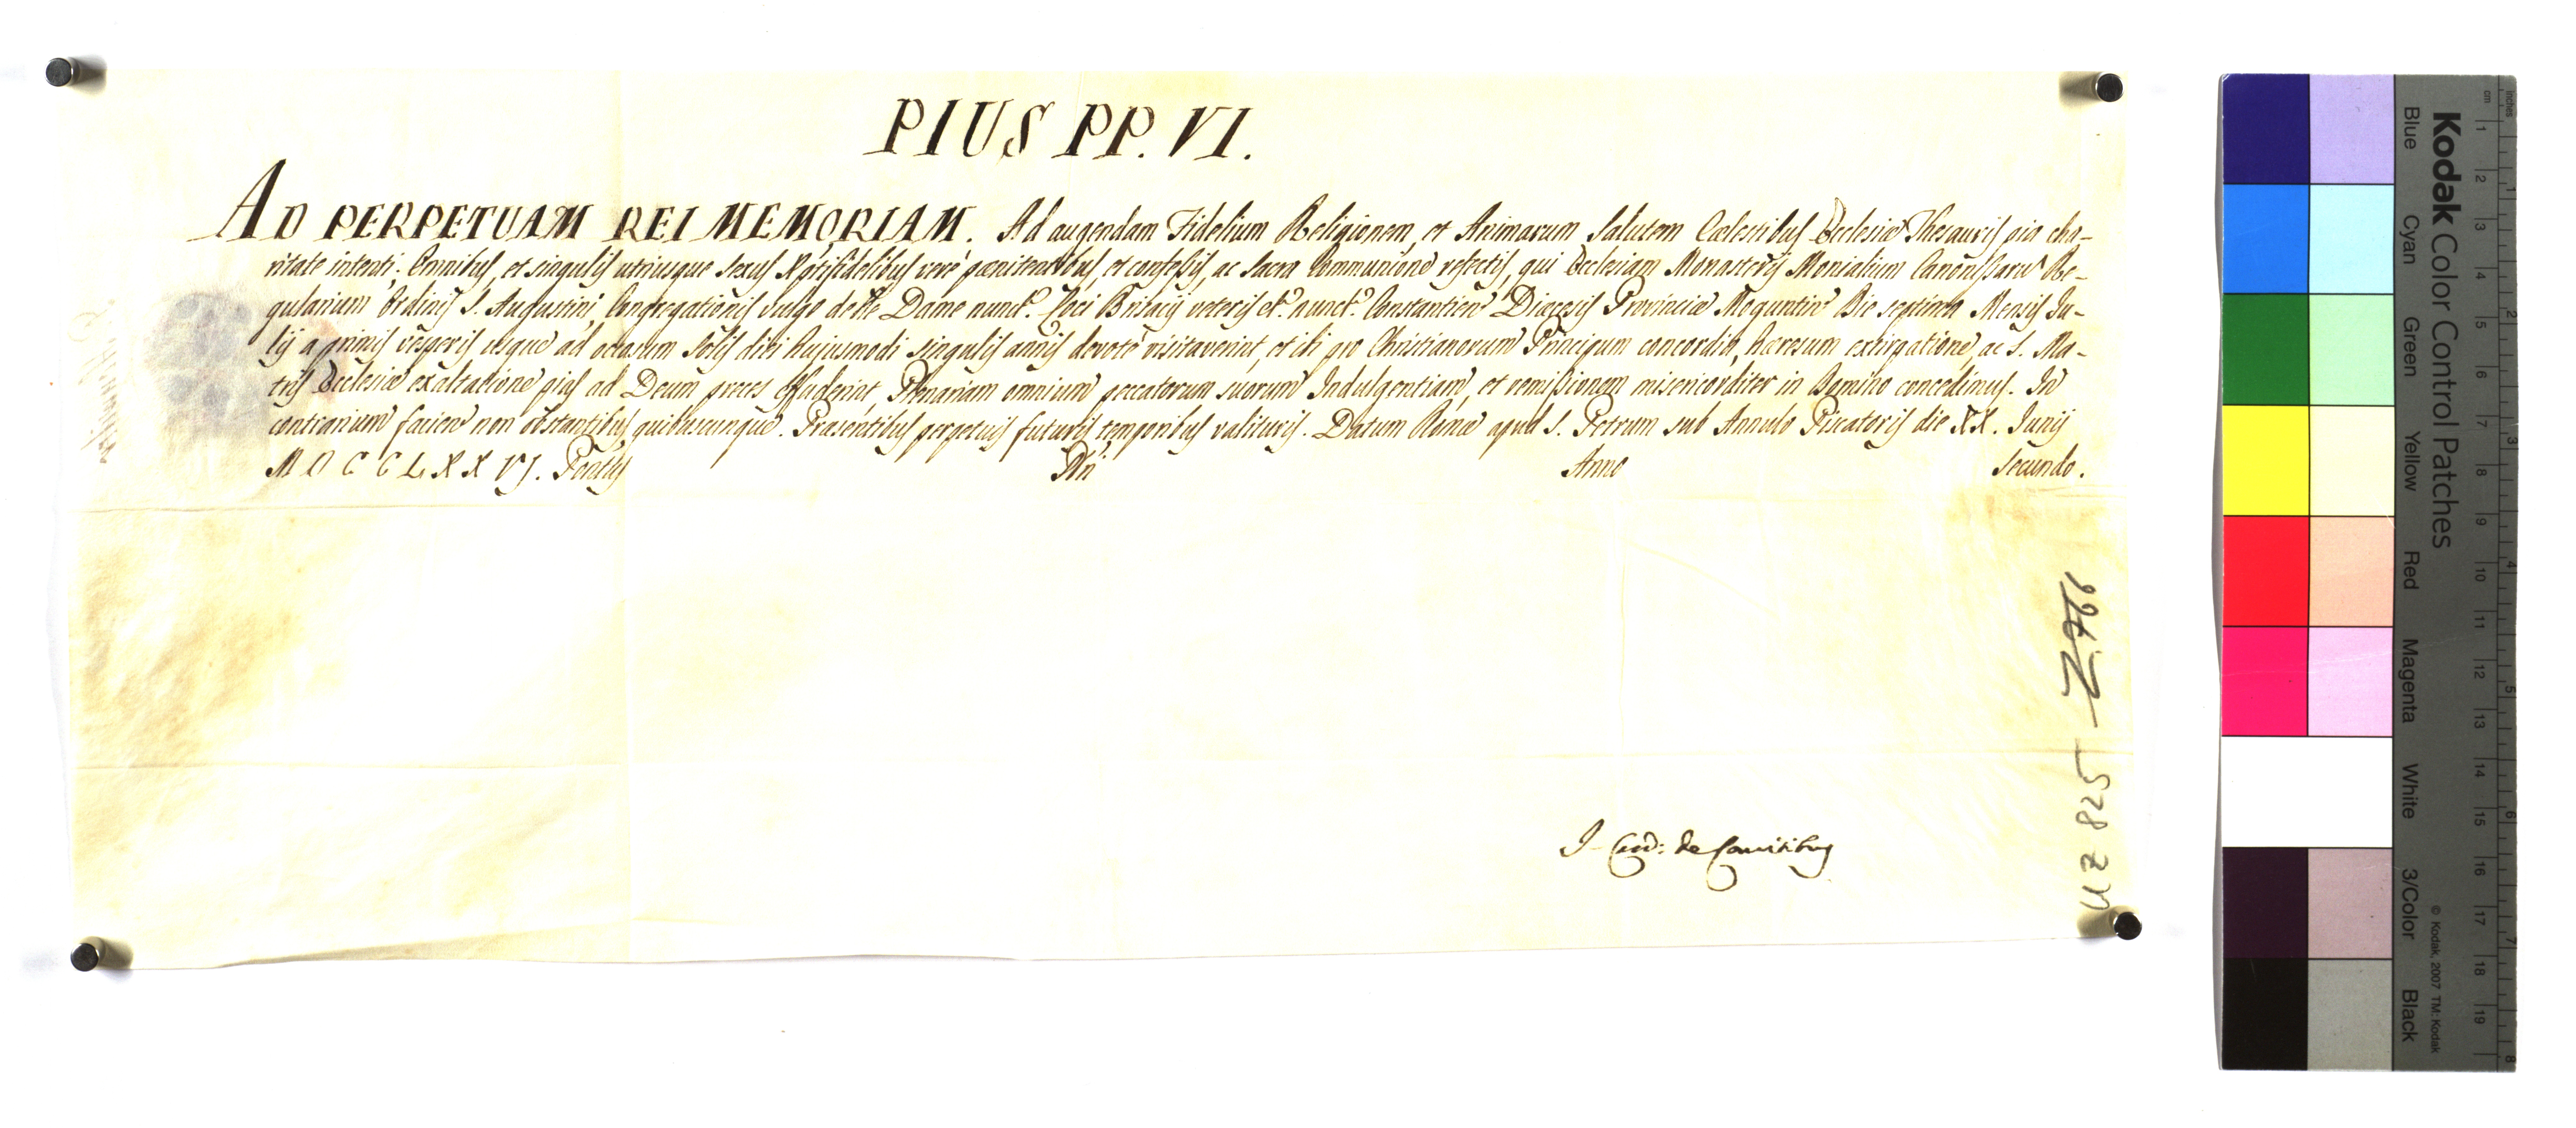 PIUS PP. VI.
AD PERPETUAM REI MEMORIAM. Ad augendam Fidelium Religionem, et Animarum Salutem Cœlestibus Ecclesiæ Thesauris pia cha-
ritate intenti. Omnibus, et singulis utriusque sexus Xptifidelibus verè pœnitentibus, et confessis, ac Sacra Communione refectis, qui Ecclesiam Monasterij Monialium Canonissarum Re-
gularium Ordinis S. Augustini Congregationis vulgo de tte Dame nunct. Loci Brisacij veteris et. nunct. Constantien Diœcesis Provinciæ Moguntin Die septima Mensis Ju-
lij a primis vesperis usque ad occasum Solis diei hujusmodi singulis annis devotè visitaverint, et ibi pro Christianorum Principum concordia, hæresum extirpatione, ac S. Ma-
tris Ecclesiæ exaltatione pias ad Deum preces effuderint, Plenariam omnium peccatorum suorum Indulgentiam, et remissionem misericorditer in Domino concedimus. In
contrarium facien non obstantibus quibuscunque. Præsentibus perpetuis futuris temporibus valituris. Datum Romæ apud S. Petrum sub Annulo Piscatoris die XX. Junij
MDCCLXXVJ. Pontûs Nri Anno Secundo.
J. Card: de Comitibus
UZ 825 Z.766
Kodak Color Control Patches
Blue Cyan Green Yellow Red Magenta White 3/Color Black
© Kodak, 2007 TM: Kodak
cm 1 2 3 4 5 6 7 8 9 10 11 12 13 14 15 16 17 18 19
inches 1 2 3 4 5 6 7 8